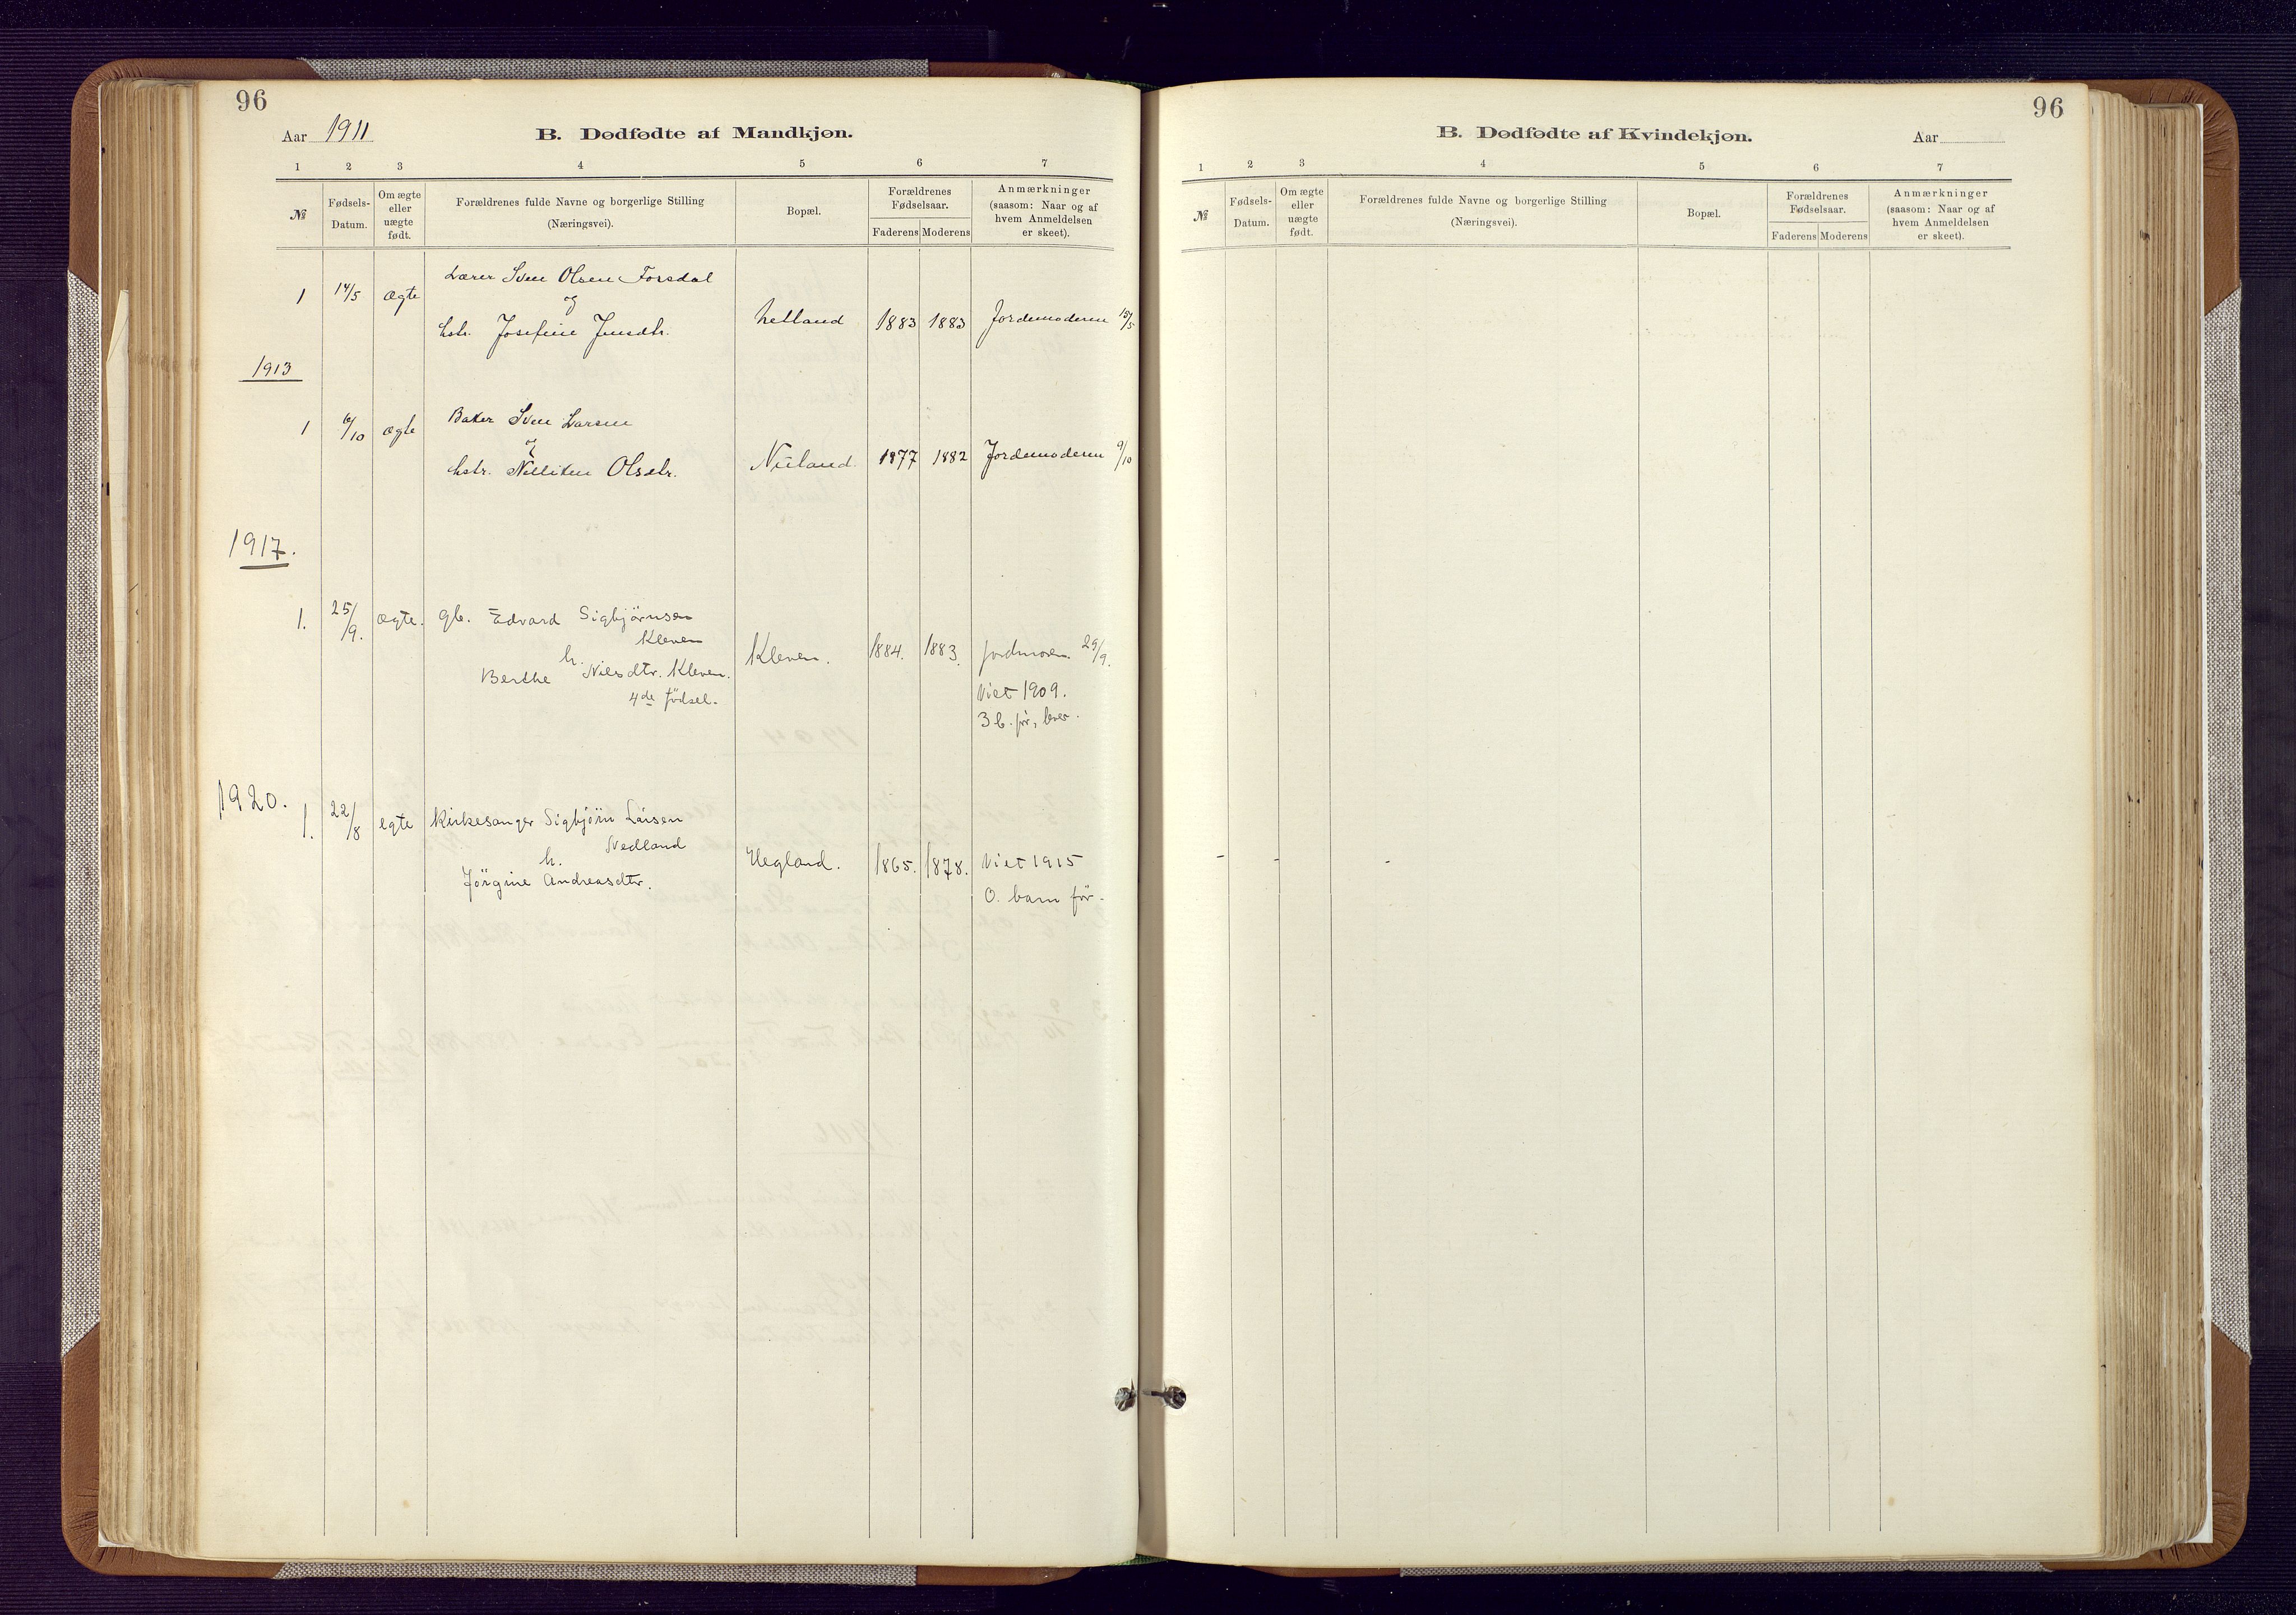 96
Aar 1911
B. Dødfødte af Mandkjøn.
1 2 3 4 5 6 7
№
Fødsels-
Datum.
Om ægte
eller
uægte
født.
Forældrenes fulde Navne og borgerlige Stilling
(Næringsvei).
Bopæl.
Forældrenes
Fødselsaar.
Faderens Moderens
Anmærkninger
(saasom: Naar og af
hvem Anmeldelsen
er skeet).
1 14/5 ægte Lærer Sven Olsen Forsdal
og
hstr. Josefine Jensdtr. Helland 1883 1883 Jordemoderen 15/5
1913
1 6/10 ægte Baker Sven Larsen
og
hstr. Olsdtr. 1877 1882 Jordemoderen 9/10
1917.
1. 25/9. ægte. gb. Edvard Sigbjörnsen
Kleven
h.
Berthe Nilsdtr. Kleven. Kleven. 1884. 1883. jordmoren 29/9.
4de födsel. Viet 1909.
3 b. för, lever.
1920.
1. 22/8 egte Kirkesanger Sigbjörn Larsen
Nedland
h.
Jörgine Andreasdtr. Uegland. 1865. 1878. Viet 1915
0. barn för.
96
B. Dødfødte af Kvindekjøn.
Aar
1 2 3 4 5 6 7
№
Fødsels-
Datum.
Om ægte
eller
uægte
født.
Forældrenes fulde Navne og borgerlige Stilling
(Næringsvei).
Bopæl.
Forældrenes
Fødselsaar.
Faderens Moderens
Anmærkninger
(saasom: Naar og af
hvem Anmeldelsen
er skeet).
- - -